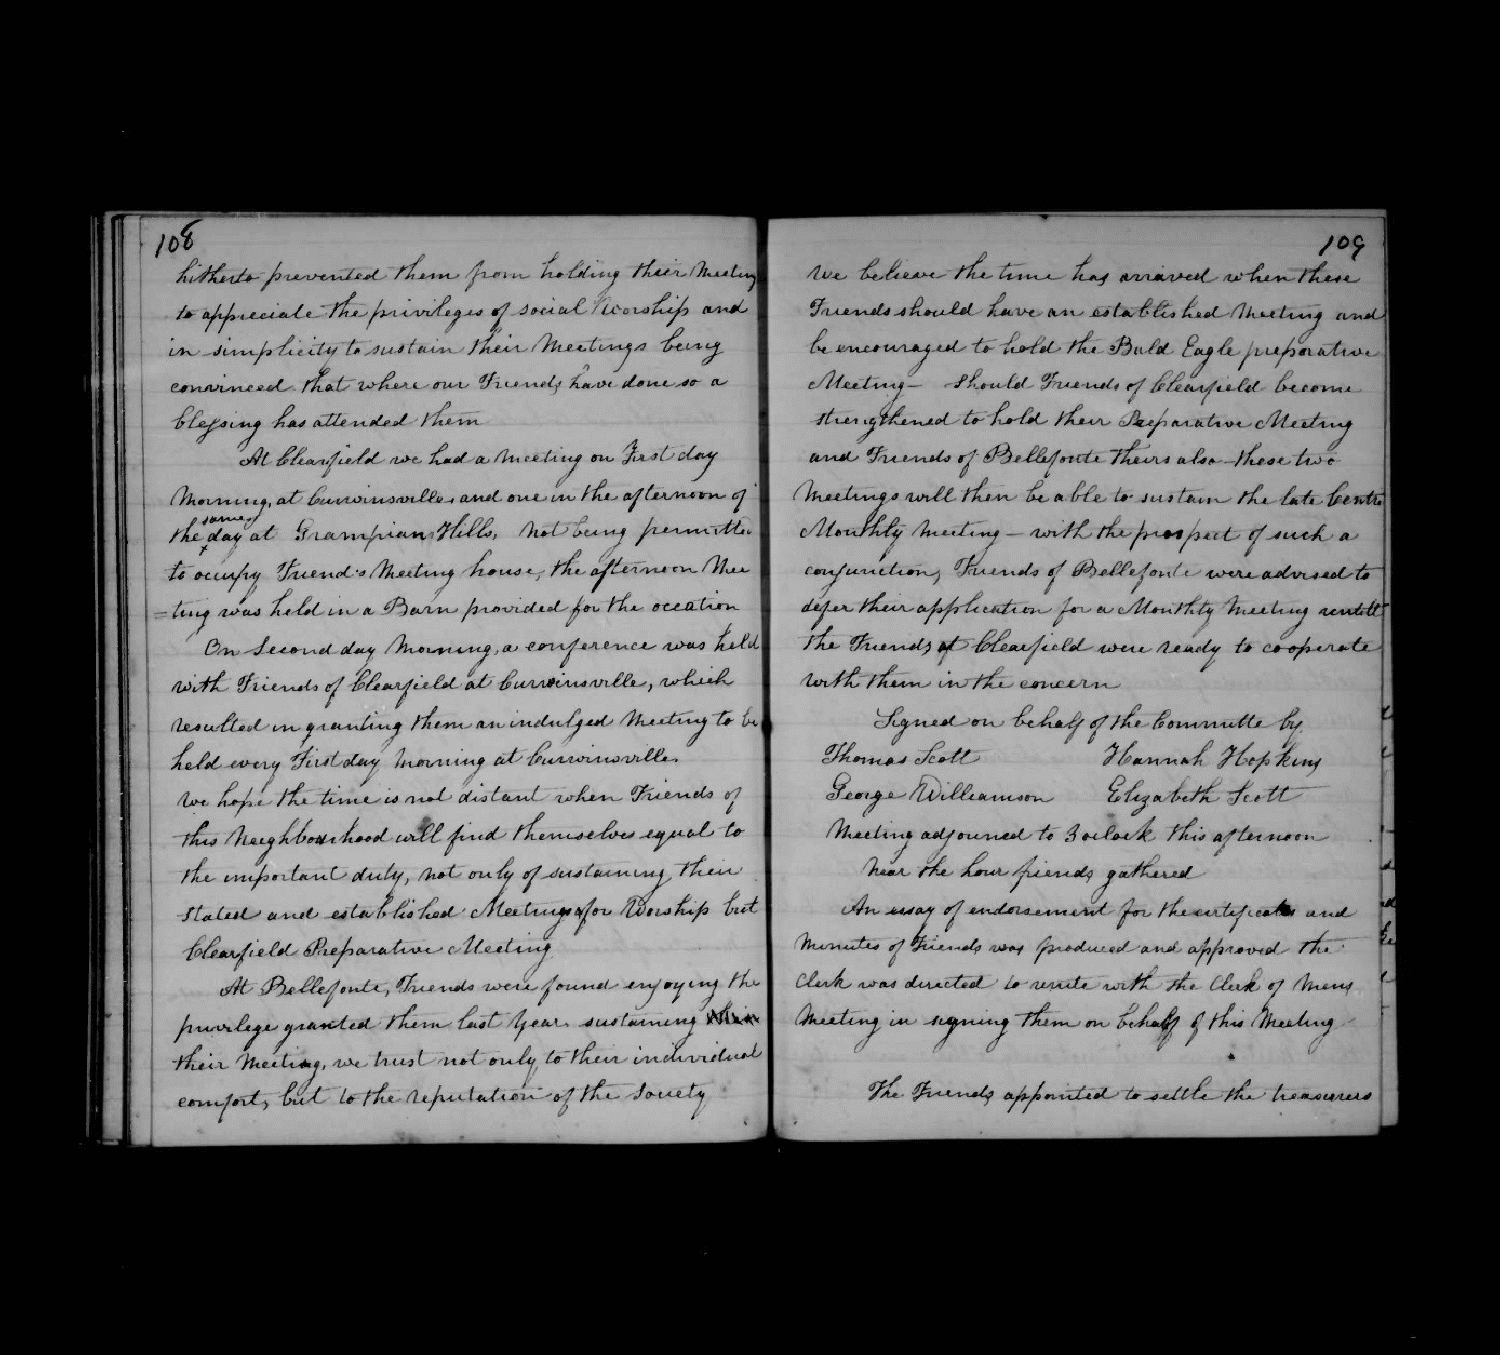 108
hitherto prevented them from holding their Meeting
to appreciate the privileges of social Worship and
in simplicity to sustain their Meetings being
convinced that where our Friends have done so a
blessing has attended them
At Clearfield we had a Meeting on First day
Morning, at Curwinsville, and one in the afternoon of
the same day at Grampian Hills, not being permitted
to occupy Friend's Meeting house, the afternoon Mee
=ting was held in a Barn provided for the occation
On Second day Morning, a conference was held
with Friends of Clearfield at Curwinsville, which
resulted in granting them an indulged Meeting to be
held every First day Morning at Curwinsville.
We hope the time is not distant when Friends of
this Neighbourhood will find themselves equal to
the important duty, not only of sustaining their
stated and established Meetings for Worship but
Clearfield Preparative Meeting
At Bellefonte, Friends were found enjoying the
privilege granted them last Year sustaining
their Meeting, we trust not only to their individual
comfort, but to the reputation of the Society
109
We believe the time has arrived when these
Friends should have an established Meeting and
be encouraged to hold the Bald Eagle preparative
Meeting— Should Friends of Clearfield become
strengthened to hold their Preparative Meeting
and Friends of Bellefonte theirs also - these two
Meetings will then be able to sustain the late Centre
Monthly Meeting — with the prospect of such a
conjunction, Friends of Bellefonte were advised to
defer their application for a Monthly Meeting untill
the Friends of Clearfield were ready to cooperate
with them in the concern
Signed on behalf of the Committe by
Thomas Scott Hannah Hopkins
George Williamson Elizabeth Scott
Meeting adjourned to 3 oclock this afternoon
Near the hour friends gathered
An essay of endorsement for the certificates and
Minutes of Friends was produced and approved the
Clerk was directed to unite with the Clerk of Mens
Meeting in signing them on behalf of this Meeting
The Friends appointed to settle the treasurers